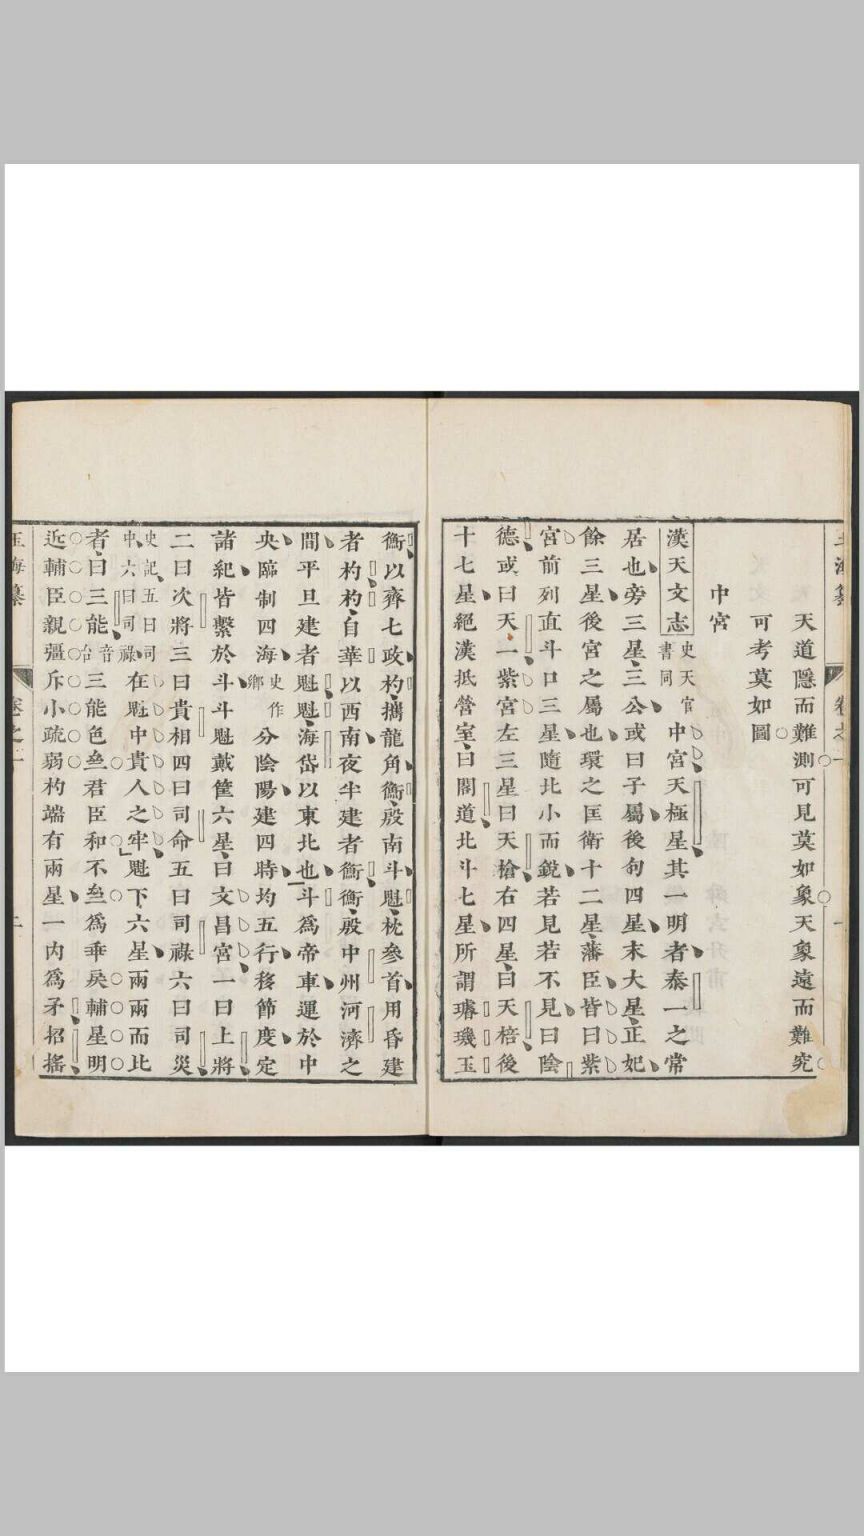 天道隱而難測可見莫如象天象遠而難究
可考莫如圖
中宮
漢天文志史天官書同中宮天極星其一明者泰一之常
居也旁三星三公或曰子屬後句四星末大星正妃
餘三星後宮之屬也環之匡衛十二星藩臣皆曰紫
宮前列直斗口三星隨北小而銳若見若不見曰陰
德或曰天一紫宮左三星曰天槍右四星曰天棓後
十七星絕漢抵營室曰閣道北斗七星所謂璿璣玉
衡以齊七政杓攜龍角衡殷南斗魁枕參首用昏建
者杓杓自華以西南夜半建者衡衡殷中州河濟之
間平旦建者魁魁海岱以東北也斗為帝車運於中
央臨制四海史作鄉分陰陽建四時均五行移節度定
諸紀皆繫於斗斗魁戴筐六星曰文昌宮一曰上將
二曰次將三曰貴相四曰司命五曰司祿六曰司災
史記五曰司中六曰司祿在魁中貴人之牢魁下六星兩兩而比
者曰三能音台三能色亝君臣和不亝為乖戾輔星明
近輔臣親彊斥小疏弱杓端有兩星一內為矛招搖
玉海纂
卷之二
二